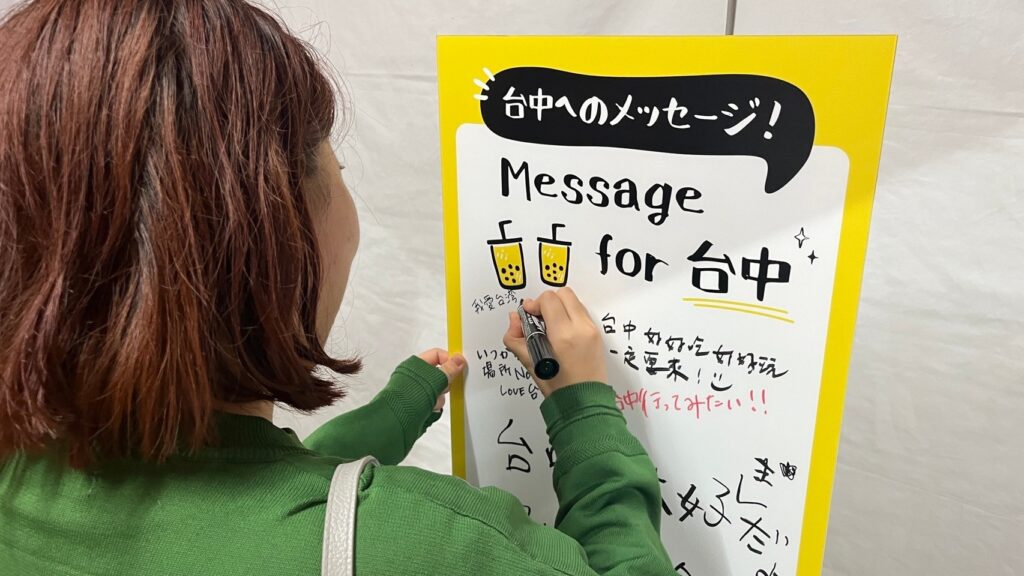 台中へのメッセージ!
Message
for 台中
我愛台湾
台中好好吃好好玩
一定要來!
いつか
場所No
LOVE台
台中行ってみたい!!
台
好